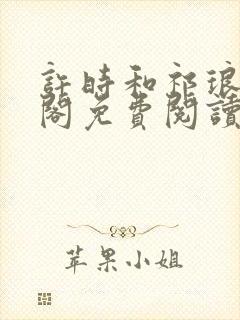 許時和祁琅
閣免費閱讀
苹果小姐